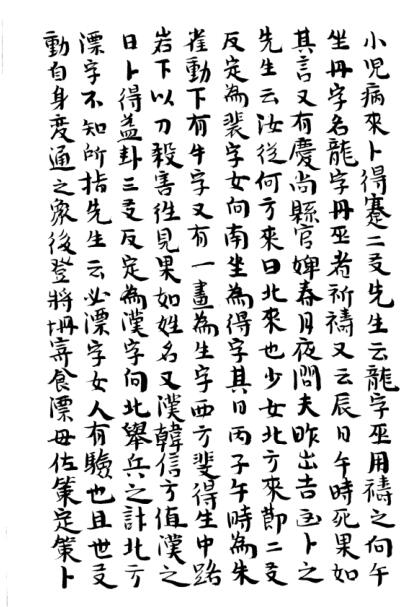 小児病來卜得蹇二爻先生云龍字巫用禱之向午
坐丹字名龍字丹巫者祈禱又云辰日午時死果如
其言又有慶尚縣官婢春月夜間夫昨出吉凶卜之
先生云汝從何方來曰北來也少女北方來節二爻
反定為裴字女向南坐為得字其日丙子午時為朱
雀動下有牛字又有一畫為生字西方斐得生中路
岩下以刀殺害徃見果如姓名又漢韓信方值漢之
日卜得益卦三爻反定為漢字向北舉兵之計北方
漂字不知所指先生云必漂字女人有驗也且世爻
動自身变通之象後登將壇寄食漂母佐策定策卜